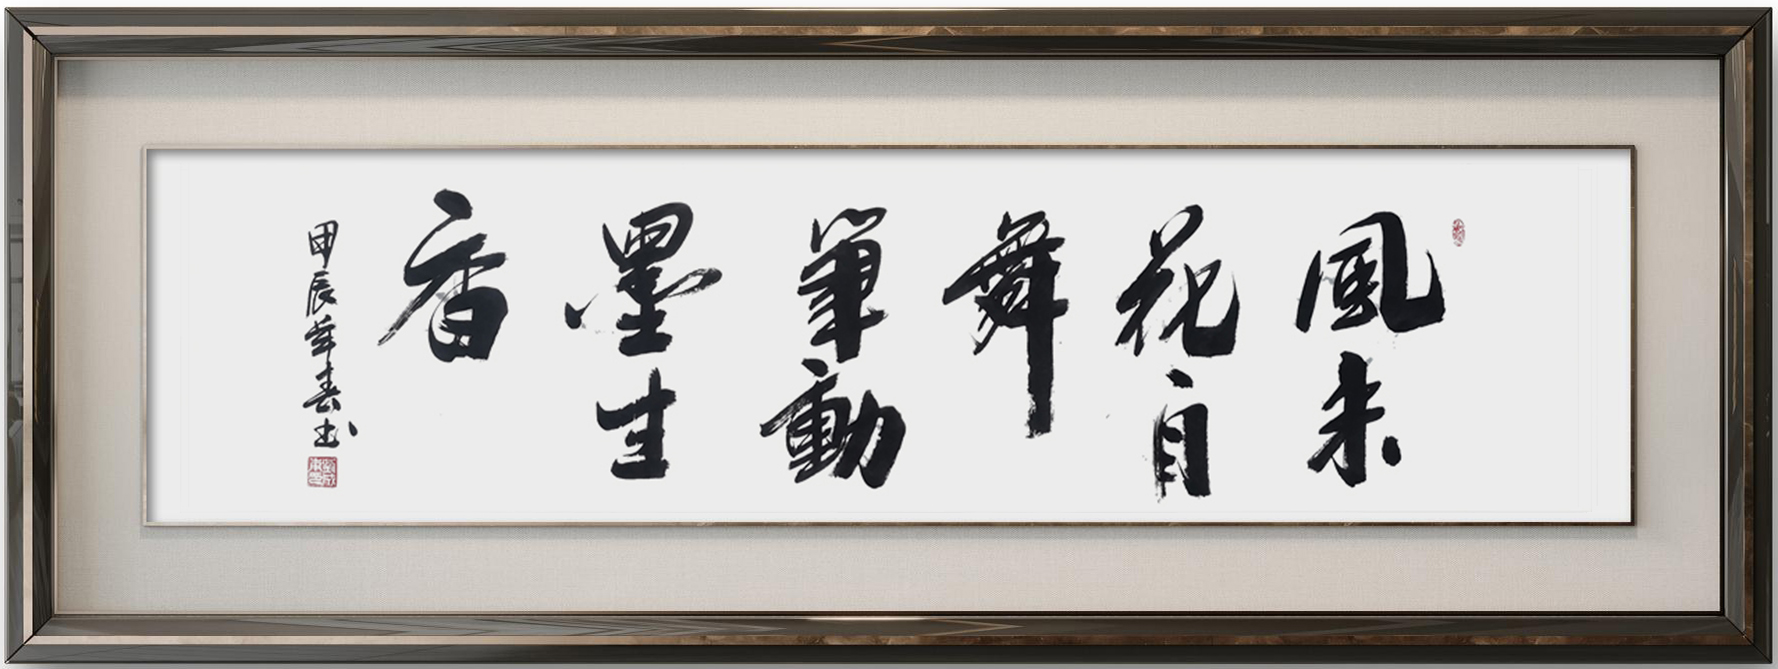 風来
花自
舞
筆動
墨生
香
甲辰年春书